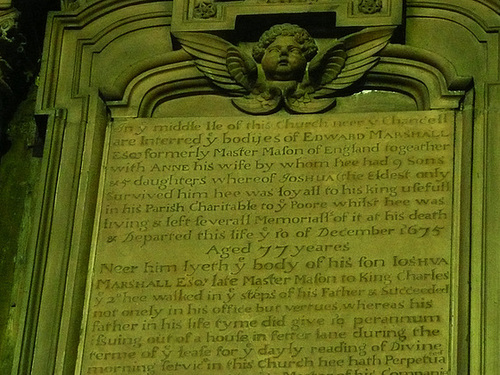 In yͤ middle Ile of this Church neer yͤ Chancell
are Interred yͤ bodijes of EDWARD MARSHALL
Esqʳ formerly Master Mason of England togearher
with ANNE his wife by whom hee had 9 Sons
& 5 daughters whereof JOSHUA (the Eldest only
Survived him hee was loyall to his king usefull
in his Parish Charitable to yͤ Poore whilst hee was
living & left severall Memorialls of it at his death
& Departed this life yͤ 10 of December 1675
Aged 77 yeares
Neer him lyeth yͤ body of his son IOSHUA
MARSHALL Esqʳ late Master Mason to King Charles
yͤ 2ᵈ hee walked in yͤ steps of his Father & Succeeded
not onely in his office but vertues whereas his
father in his life tyme did give 10 per annum
Issuing out of a house in fetter lane during the
terme of yͤ lease for yͤ dayly reading of Divine
morning servic in this Church hee hath Perpetua